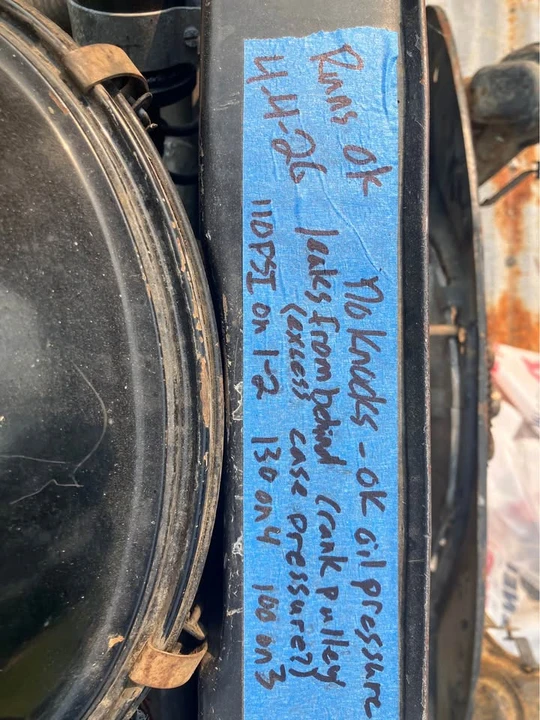 Runs OK No Knocks - OK Oil pressure
4-4-26 leaks from behind Crank pulley
(excess case pressure?)
110 PSI on 1-2 130 on 4 100 on 3